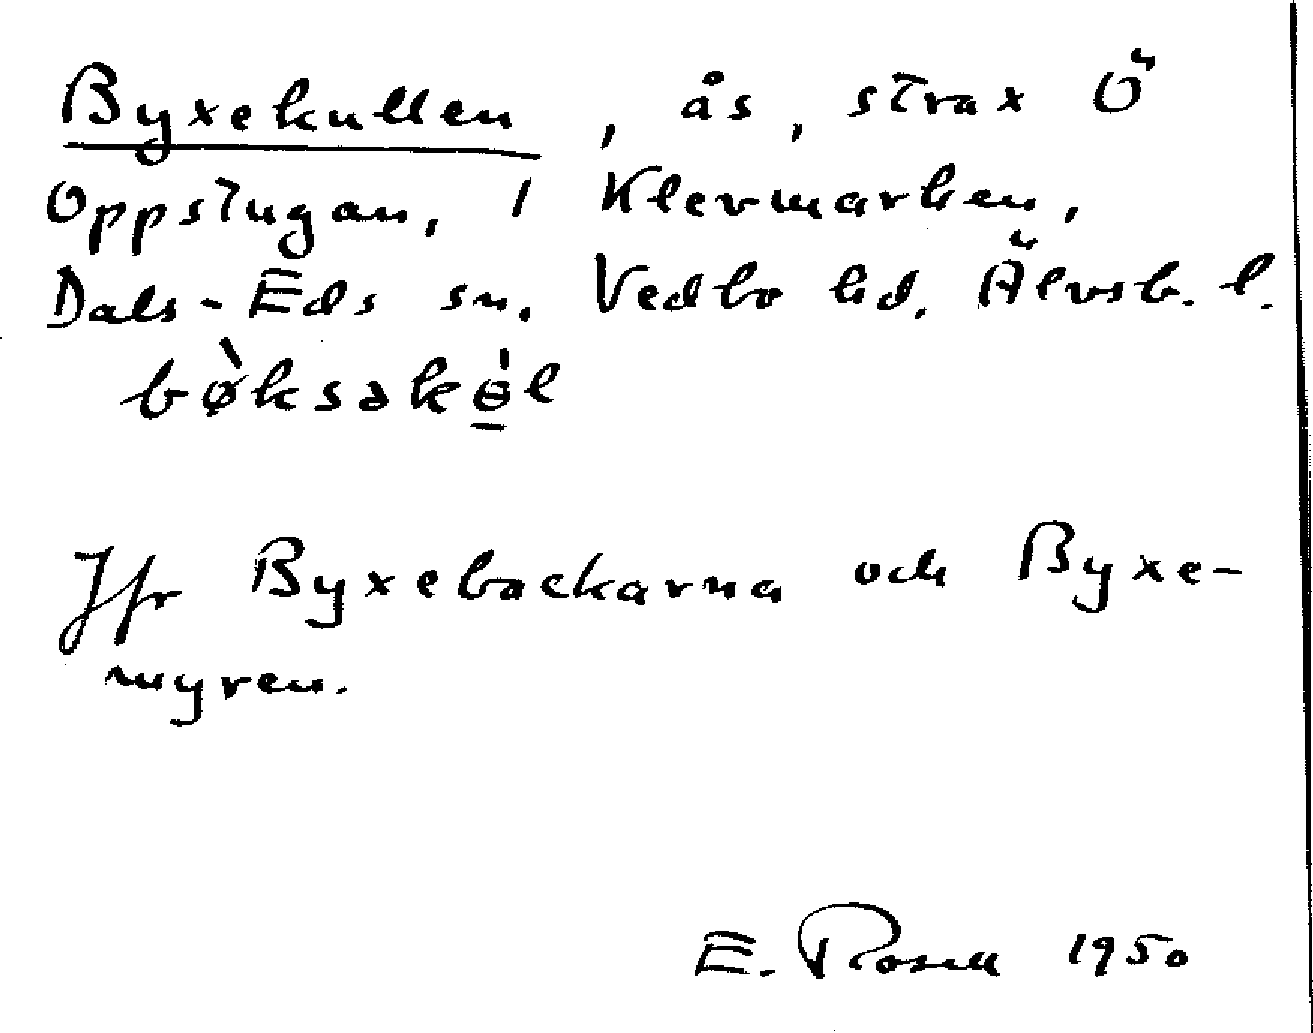 Byxekullen, ås, strax Ö
Oppstugan, i Klevmarken,
Dals-Eds sn. Vedbo hd. Älvsb. l.
bø̀ksəkɵ̠̀l
Jfr Byxebackarna och Byxe-
myren.
E. Rosell 1950